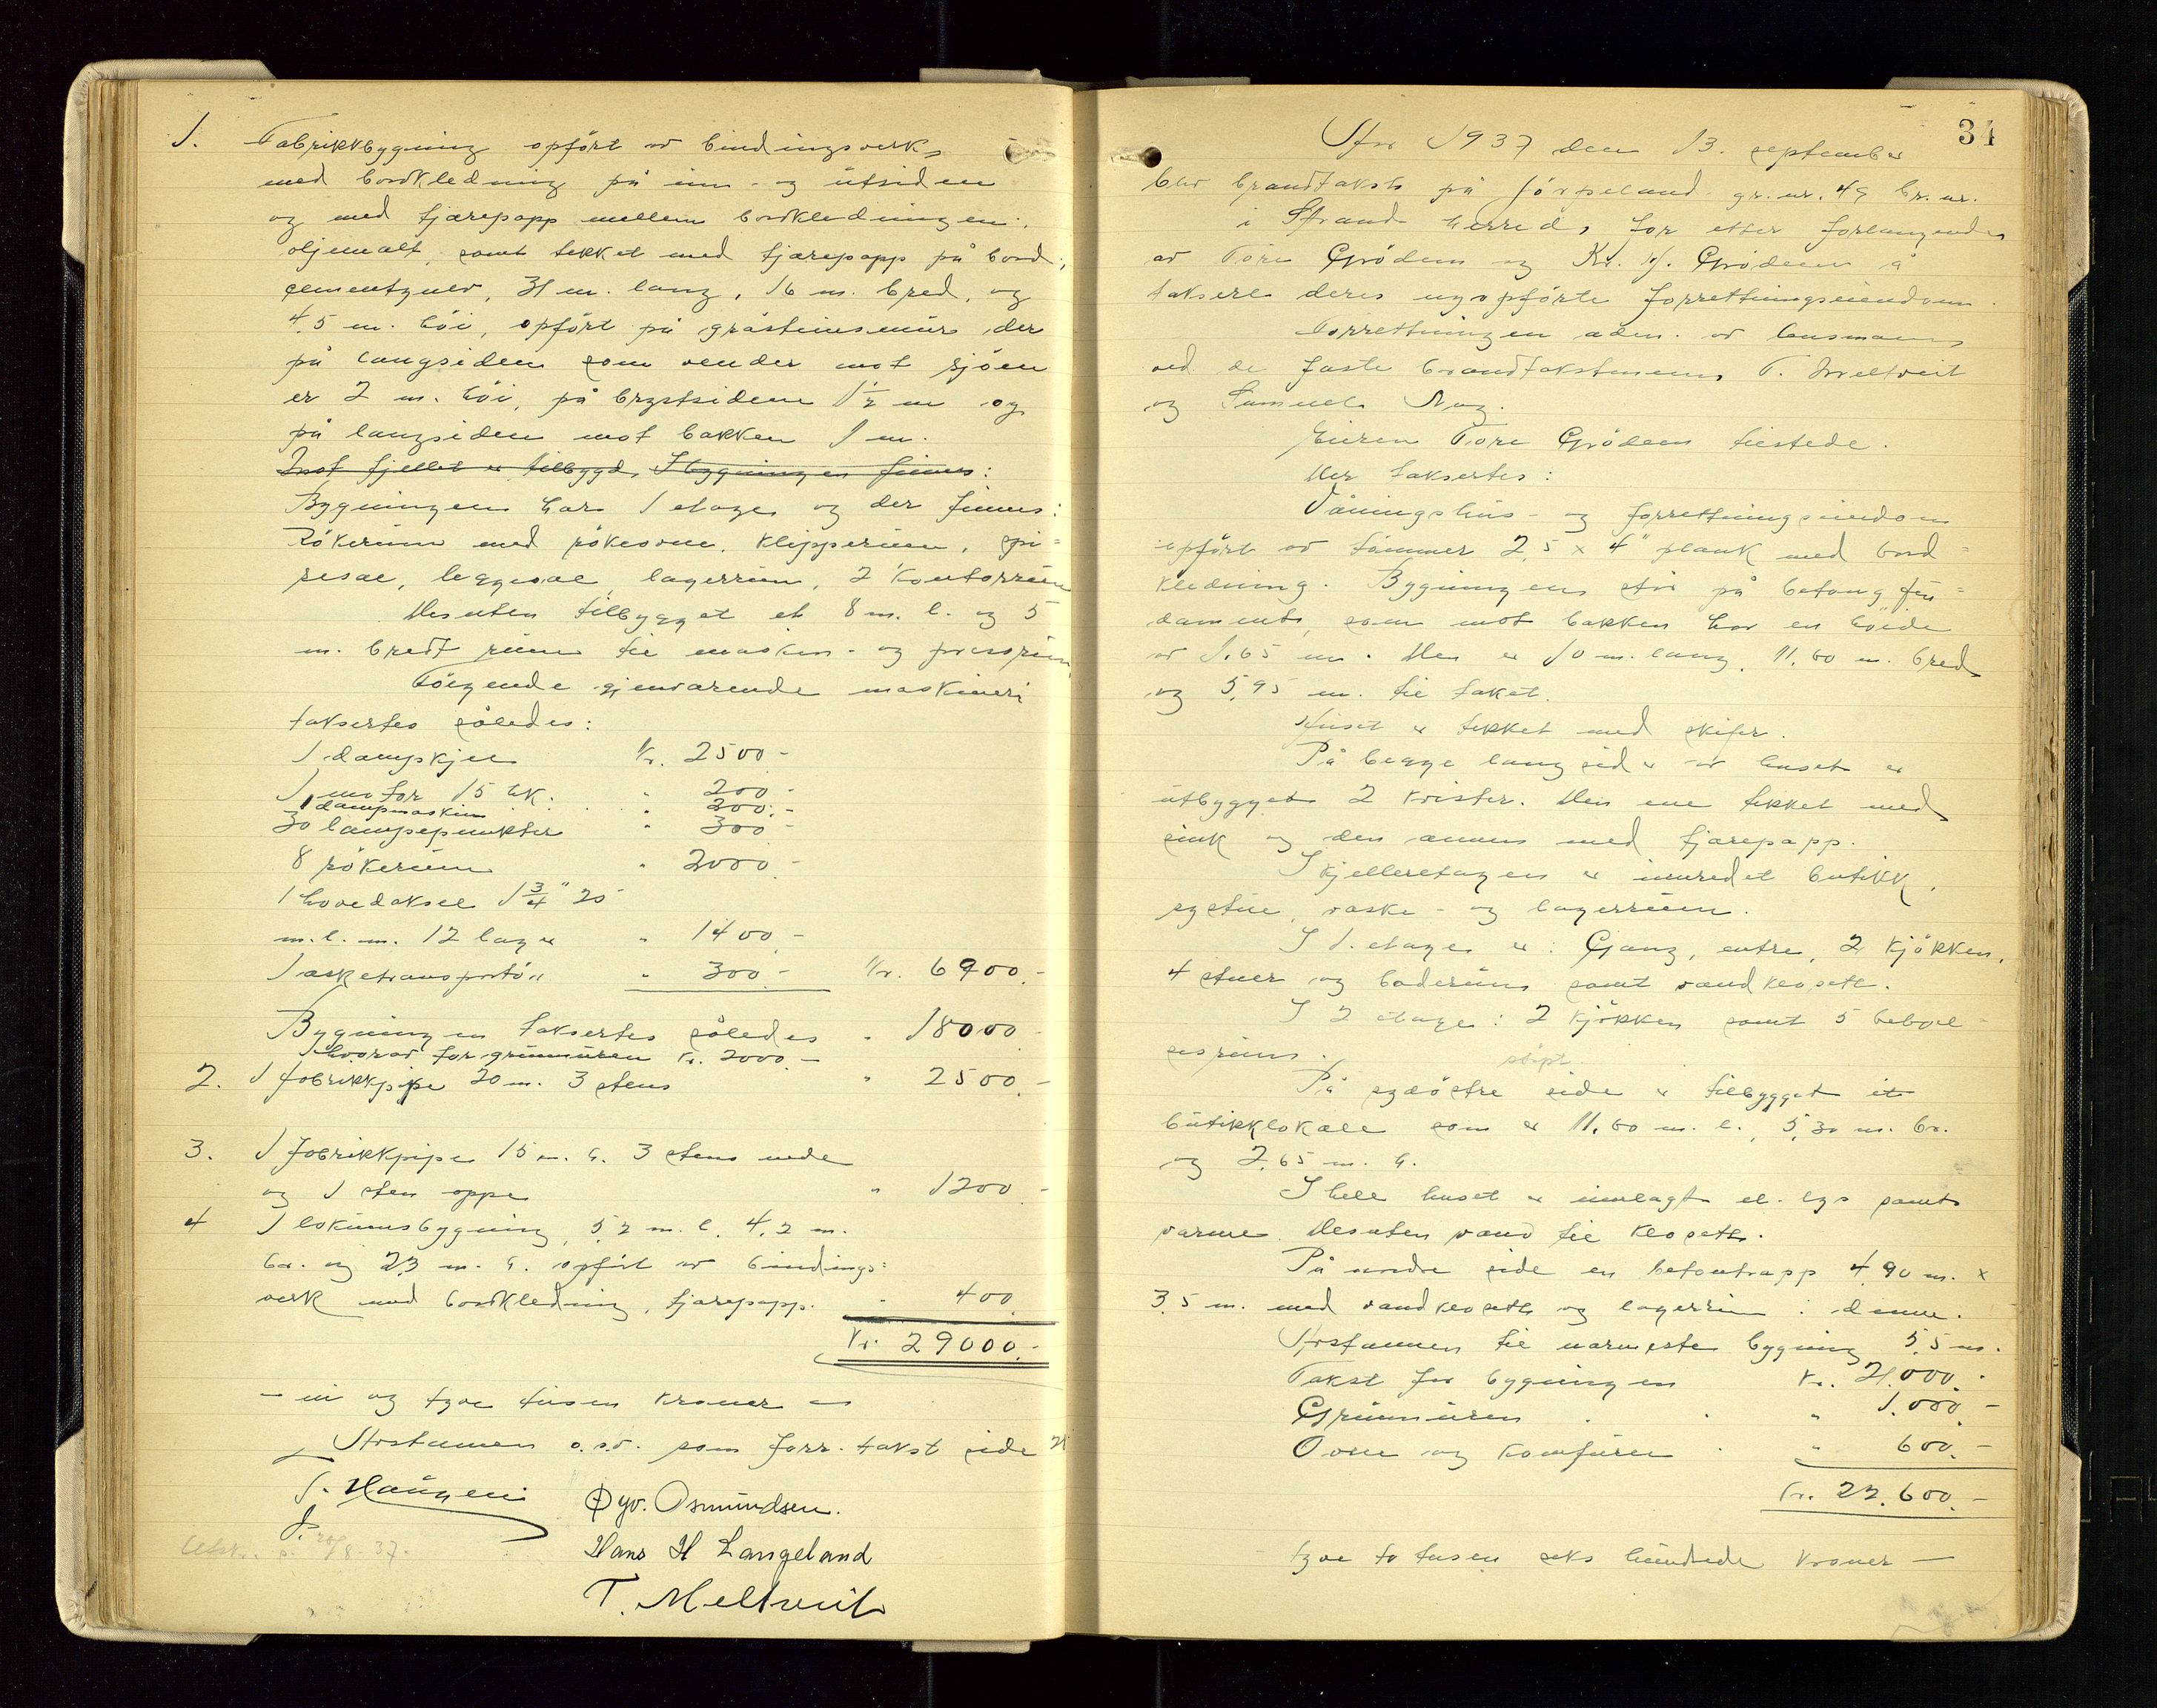 1. Fabrikkbygning opført av bindingsverk,
med bordkledning på inn- og utsiden
og med tjærepapp mellem bordkledningen,
oljemalt, samt tekket med tjærepapp på bord,
cementgulv, 31 m. lang, 16 m. bred, og
4,5 m. höi, opfört på gråstensmur, der
på langsiden som vender mot sjöen
er 2 m. höi, på brystsidene 1½ m og
på langsiden mot bakken 1 m.
Mot fjellet er tilbygd, I bygningen finnes:
Bygningen har 1 etage og der finnes:
Rökerum med rökeovne, klipperum, spi=
sesal, leggesal, lagerrum, 2 kontorrum
Desuten tilbygget et 8 m. l. og 5
m. bredt rum til maskin- og pressrum
Følgende gjenværende maskineri
taksertes således:
1 dampkjel Kr. 2500.-
1 motor 15 hk. " 200.-
1 dampmaskin " 200.-
30 lampepunkter " 300.-
8 rökerum " 2000.-
1 hovedaksel 1 3/4" 25
m. l. m. 12 lager " 1400.-
1 asketransportör " 300.- Kr. 6900.-
Bygningen taksertes således " 18000.-
hvorav for grunnmuren kr. 2000.-
2. 1 fabrikkpipe 20 m. 3 stens " 2500.-
3. 1 fabrikkpipe 15 m. h. 3 stens nede
og 1 sten oppe " 1200.-
4 1 lokumsbygning, 5,2 m. l. 4,2 m.
br. og 2,3 m. h. opfört av bindings=
verk med bordkledning, tjærepapp. " 400.
Kr. 29000.-
- ni og tyve tusen kroner -
Avstannen o.s.v. som forr. takst side 21
T. Haugen Øyv. Osmundsen.
Hans H Langeland
T. Meltveit
Utskr. s. 20/8-37.
34
År 1937 den 13. september
blev brandtakst på Jörpeland gr.nr. 49 br.nr.
i Strand herred, for efter forlangende
av Tore Gröden og Kr. M. Gröden å
taksere deres nyopförte forrettningseiendom.
Forrettningen adm. av lensmann,
ved de faste brandtakstmenn, T. Meltveit
og Samuel Nag.
Eieren Tore Gröden tilstede.
Der taksertes:
Våningshus- og forrettningseiendom
opfört av tömmer 2,5 x 4" plank med bord=
kledning. Bygningen står på betongfun=
dament, som mot bakken har en höide
av 1,65 m. Den er 10 m. lang, 11,60 m. bred
og 5,95 m. til taket.
Huset er tekket med skifer.
På begge langsider av huset er
utbygget 2 kvister. Den ene tekket med
sink og den annen med tjærepapp.
I kjelleretagen er innredet butikk,
systue, vaske- og lagerrum.
I 1. etage er: Gang, entre, 2 kjökken,
4 stuer og baderum samt vandklosett.
I 2 etage: 2 kjökken samt 5 beboel-
sesrum.
støpt
På sydöstre side er tilbygget et
butikklokale som er 11,60 m. l., 5,30 m. br.
og 2,65 m. h.
I hele huset er innlagt el. lys samt
varme. Desuten vand til klosett.
På nordre side en betontrapp 4,90 m. x
3,5 m. med vandklosett og lagerrum i denne.
Avstannen til nærmeste bygning 5,5 m.
Takst for bygningen Kr. 21.000.-
Grunnmuren " 1.000.-
Ovne og komfurer " 600.-
Kr. 22.600.-
- tyve to tusen seks hundrede kroner -